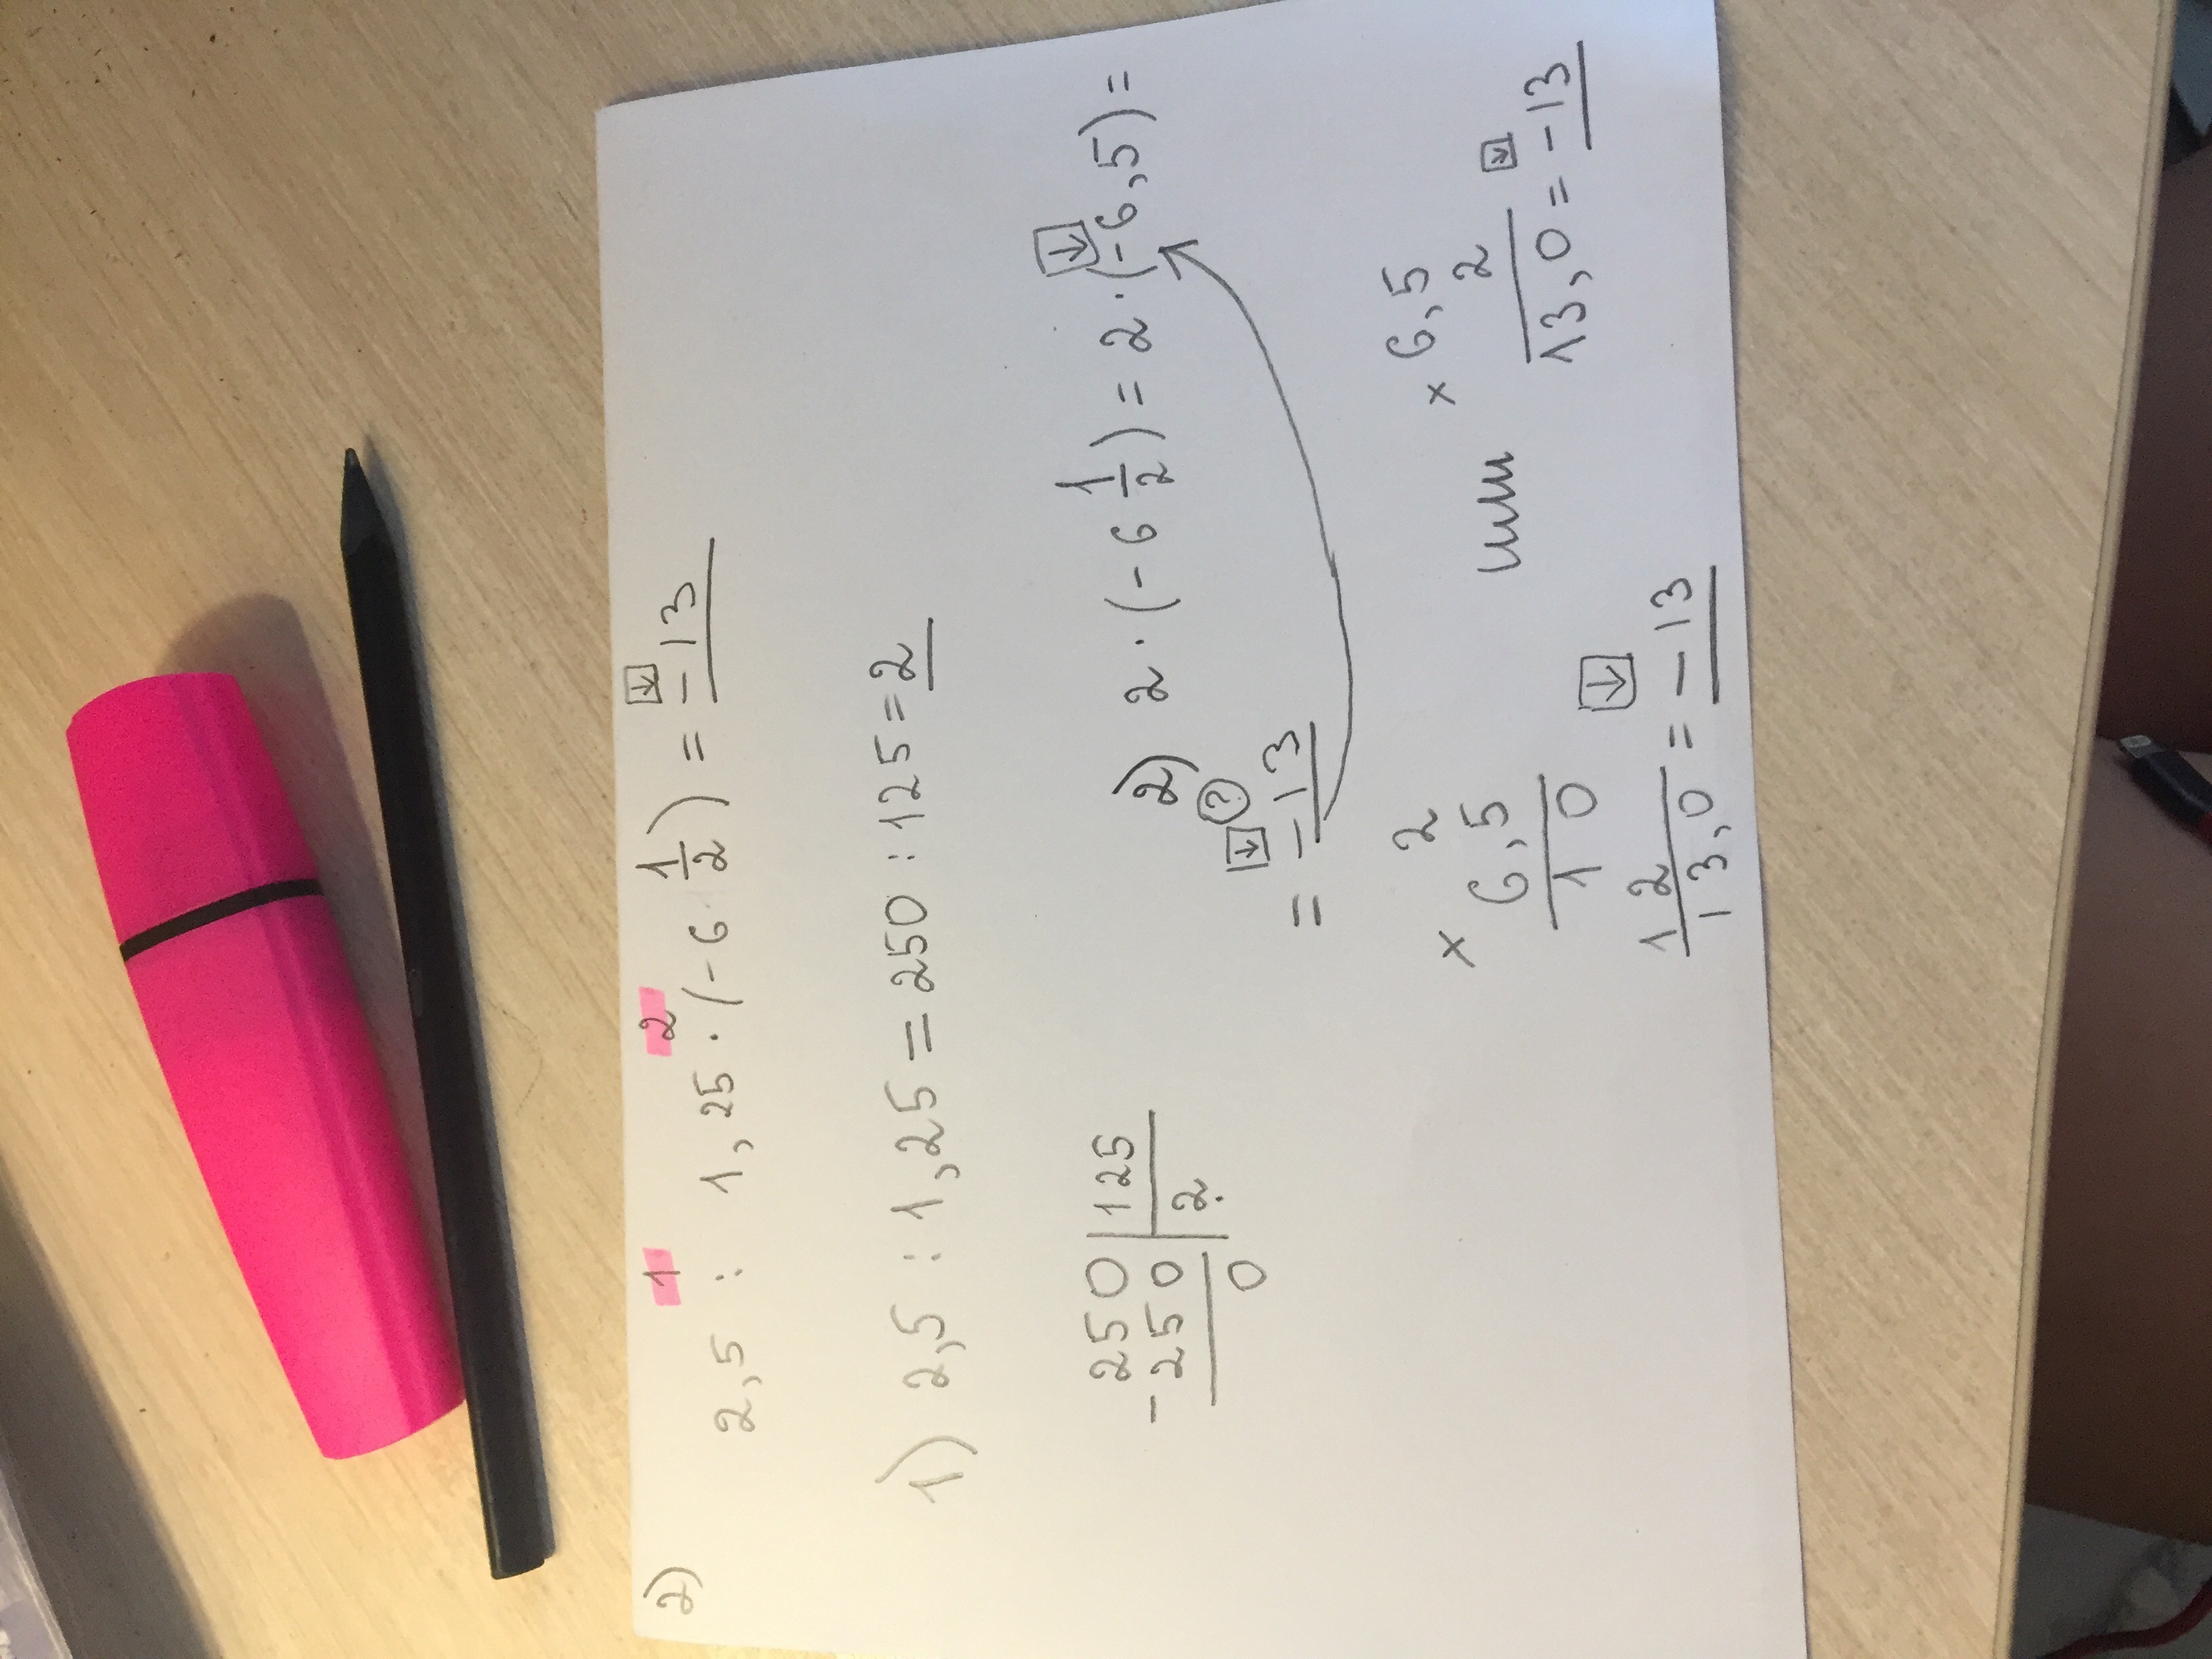 2)
1 2
2,5 : 1,25 · (-6 1/2) = -13
1) 2,5 : 1,25 = 250 : 125 = 2
250 | 125
-250 | 2.
0
2) 2 · (-6 1/2) = 2 · (-6,5) =
?
= -13
2
× 6,5
1 0
1 2
13,0 = -13
или
× 6,5
2
13,0 = -13